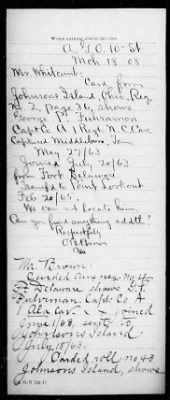 Write nothing above this line.
A.G.O. 10th St
Mch 18-08
Mr. Whitcomb:
Card from
Johnsons Island, Ohio, Reg.
No 2, page 36, shows
George P. Fuhrman
Capt Co. A 1 Regt N.C. Cav.
Captured Middleboro, Tenn
May 27/63
Joined July 20/63
from Fort Delaware
Transf'd to Point Lookout
Feb 20/65.
We can not locate him.
Can you find anything addtl?
Respectfully
Mr. Brown:
Carded
Ft. Delaware shows
Fuhrman, Capt. Co A
1 Ala Cav. joined
June 1/63, sent to
Johnsons Island
July 18/63.
Carded roll no 43
Johnsons Island, shows